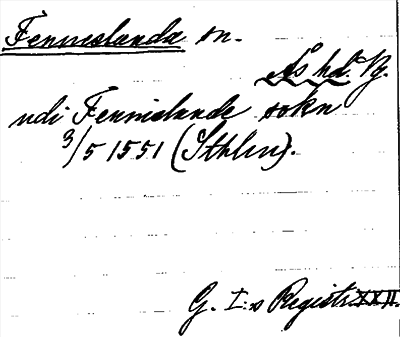 Fennislanda sn.
Ås hd. Vg.
udi Fennislande sokn
3/5 1551 (Sthlm).
G. I:s Registr. XXII.